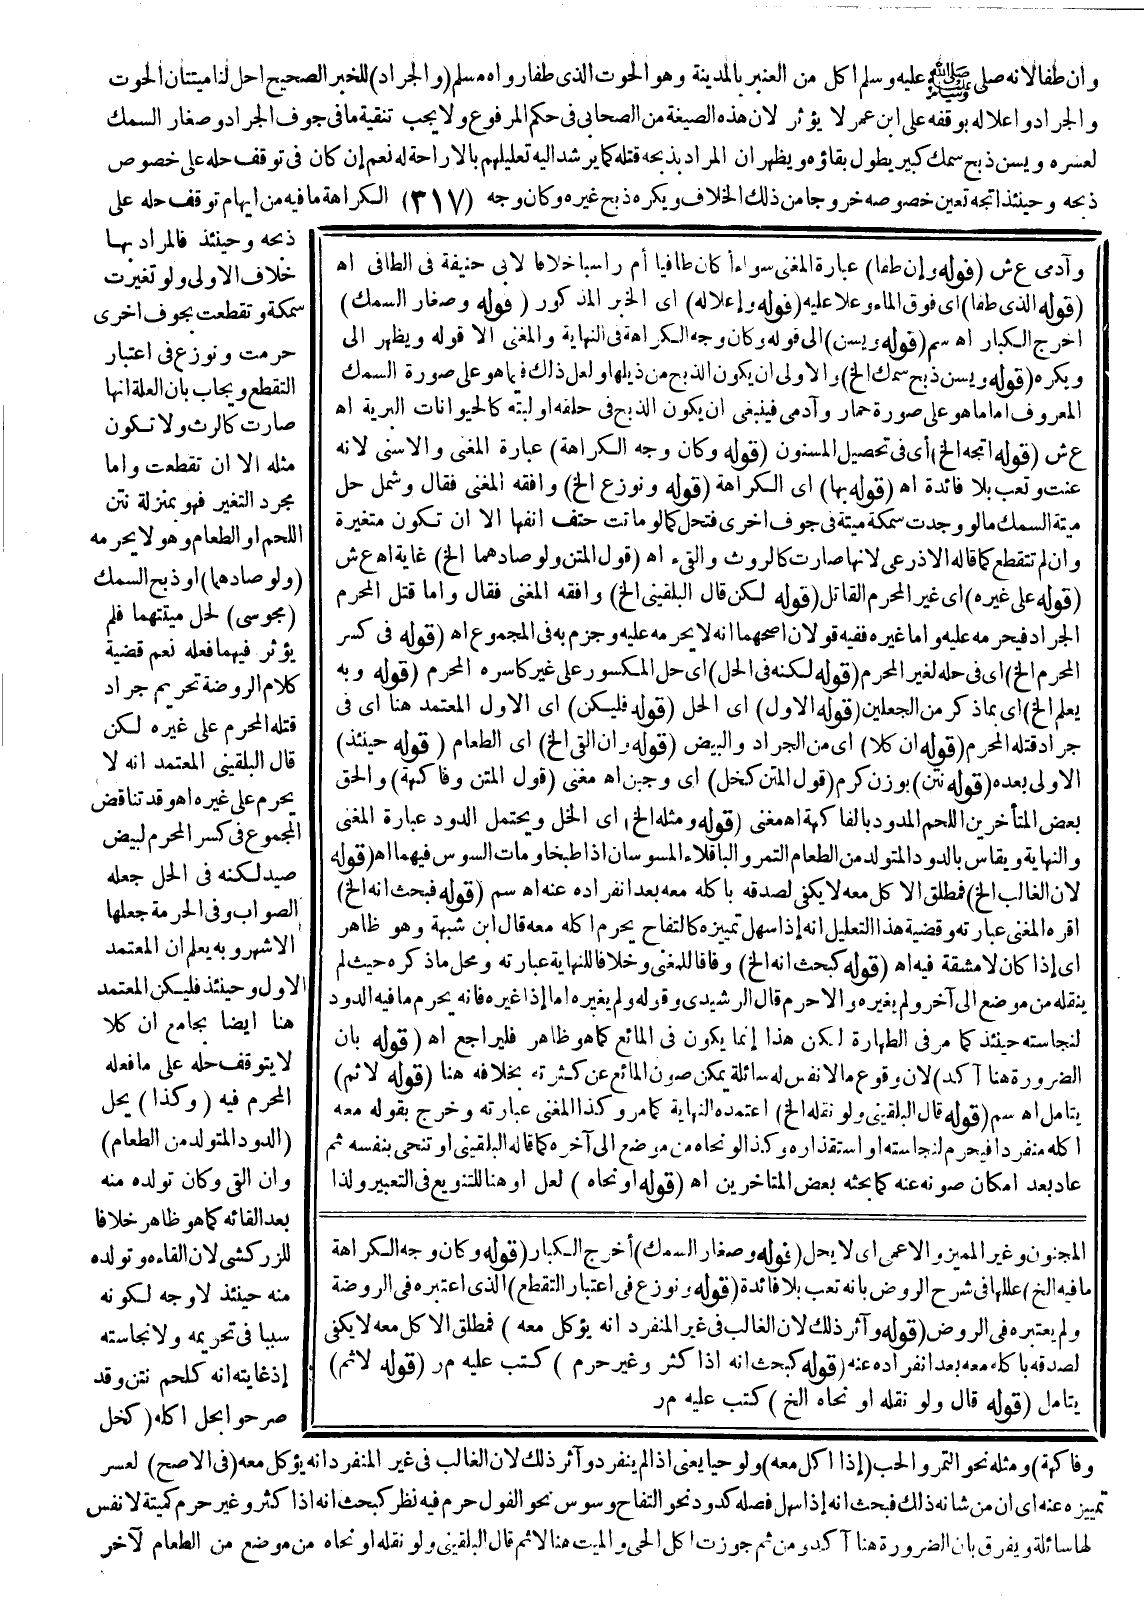 وان طفا لانه صلى ﷺ عليه وسلم اكل من العنبر بالمدينة وهو الحوت الذى طفا رواه مسلم (والجراد) للخبر الصحيح احل لنا ميتتان الحوت
والجراد واعلاله بوقفه على ابن عمر لا يؤثر لان هذه الصيغة من الصحابى فى حكم المرفوع ولا يجب تنقية ما فى جوف الجراد وصغار السمك
لعسره ويسن ذبح سمك كبير يطول بقاؤه ويظهر ان المراد بذبحه قتله كما يرشد اليه تعليلهم بالاراحة له نعم إن كان فى توقف حله على خصوص
ذبحه وحينئذ اتجه تعين خصوصه خروجا من ذلك الخلاف ويكره ذبح غيره وكان وجه (٣١٧) الكراهة ما فيه من ايهام توقف حله على
ذبحه وحينئذ فالمراد بها
خلاف الاولى ولو تغيرت
سمكة وتقطعت بجوف اخرى
حرمت ونوزع فى اعتبار
التقطع ويجاب بان العلة انها
صارت كالرث ولا تكون
مثله الا ان تقطعت واما
مجرد التغير فهو بمنزلة نتن
اللحم او الطعام وهو لا يحرمه
(ولو صادهما) او ذبح السمك
(مجوسى) لحل ميتتهما فلم
يؤثر فيهما فعله نعم قضية
كلام الروضة تحريم جراد
قتله المحرم على غيره لكن
قال البلقينى المعتمد انه لا
يحرم على غيره اه وقد تناقض
المجموع فى كسر المحرم لبيض
صيد لكنه فى الحل جعله
الصواب وفى الحرمة جعلها
الاشهر وبه يعلم ان المعتمد
الاول وحينئذ فليكن المعتمد
هنا ايضا بجامع ان كلا
لا يتوقف حله على ما فعله
المحرم فيه (وكذا) يحل
(الدود المتولد من الطعام)
وان القى وكان تولده منه
بعد القائه كما هو ظاهر خلافا
للزركشى لان القاءه وتولده
منه حينئذ لا وجه لكونه
سببا فى تحريمه ولا نجاسته
إذ غايته انه كلحم نتن وقد
صرحوا بحل اكله (كخل
وآدمى ع ش (قوله وإن طفا) عبارة المغنى سواء أكان طافيا أم راسبا خلافا لابى حنيفة فى الطافى اه
(قوله الذى طفا) اى فوق الماء وعلا عليه (قوله وإعلاله) اى الخبر المذكور (قوله وصغار السمك)
اخرج الكبار اه سم (قوله ويسن) الى قوله وكان وجه الكراهة فى النهاية والمغنى الا قوله ويظهر الى
ويكره (قوله ويسن ذبح سمك الخ) والاولى ان يكون الذبح من ذيلها ولعل ذلك فيما هو على صورة السمك
المعروف اما ما هو على صورة حمار وآدمى فينبغى ان يكون الذبح فى حلقه او لبته كالحيوانات البرية اه
ع ش (قوله اتجه الخ) أى فى تحصيل المسنون (قوله وكان وجه الكراهة) عبارة المغنى والاسنى لانه
عنت وتعب بلا فائدة اه (قوله بها) اى الكراهة (قوله ونوزع الخ) وافقه المغنى فقال وشمل حل
ميتة السمك ما لو وجدت سمكة ميتة فى جوف اخرى فتحل كما لو ماتت حتف انفها الا ان تكون متغيرة
وان لم تتقطع كما قاله الاذرعى لانها صارت كالروث والقىء اه (قول المتن ولو صادهما الخ) غاية اه ع ش
(قوله على غيره) اى غير المحرم القاتل (قوله لكن قال البلقينى الخ) وافقه المغنى فقال واما قتل المحرم
الجراد فيحرمه عليه واما غيره ففيه قولان اصحهما انه لا يحرمه عليه وجزم به فى المجموع اه (قوله فى كسر
المحرم الخ) اى فى حله لغير المحرم (قوله لكنه فى الحل) اى حل المكسور على غير كاسره المحرم (قوله وبه
يعلم الخ) اى بما ذكر من الجعلين (قوله الاول) اى الحل (قوله فليكن) اى الاول المعتمد هنا اى فى
جراد قتله المحرم (قوله ان كلا) اى من الجراد والبيض (قوله وان القى الخ) اى الطعام (قوله حينئذ)
الاولى بعده (قوله نتن) بوزن كرم (قول المتن كخل) اى وجبن اه مغنى (قول المتن وفاكهة) والحق
بعض المتأخرين اللحم المدود بالفاكهة اه مغنى (قوله ومثله الخ) اى الخل ويحتمل الدود عبارة المغنى
والنهاية ويقاس بالدود المتولد من الطعام التمر والباقلاء المسوسان اذا طبخا ومات السوس فيهما اه (قوله
لان الغالب الخ) فمطلق الاكل معه لا يكفى لصدقه باكله معه بعد انفراده عنه اه سم (قوله فبحث انه الخ)
اقره المغنى عبارته وقضية هذا التعليل انه إذا سهل تمييزه كالتفاح يحرم اكله معه قال ابن شهبة وهو ظاهر
اى إذا كان لا مشقة فيه اه (قوله كبحث انه الخ) وفاقا للمغنى وخلافا للنهاية عبارته ومحل ما ذكره حيث لم
ينقله من موضع الى آخر ولم يغيره والا حرم قال الرشيدى وقوله ولم يغيره اما إذا غيره فانه يحرم ما فيه الدود
لنجاسته حينئذ كما مر فى الطهارة لكن هذا إنما يكون فى المائع كما هو ظاهر فليراجع اه (قوله بان
الضرورة هنا آكد) لان وقوع ما لا نفس له سائلة يمكن صون المائع عن كثرته بخلافه هنا (قوله لاثم)
يتامل اه سم (قوله قال البلقينى ولو نقله الخ) اعتمده النهاية كما مر وكذا المغنى عبارته وخرج بقوله معه
اكله منفردا فيحرم لنجاسته او استقذاره وكذا لو نحاه من موضع الى آخره كما قاله البلقينى او تنحى بنفسه ثم
عاد بعد امكان صونه عنه كما بحثه بعض المتاخرين اه (قوله او نحاه) لعل او هنا للتنويع فى التعبير ولذا
المجنون وغير المميز والاعمى اى لا يحل (قوله وصغار السمك) أخرج الكبار (قوله وكان وجه الكراهة
ما فيه الخ) عللها فى شرح الروض بانه تعب بلا فائدة (قوله ونوزع فى اعتبار التقطع) الذى اعتبره فى الروضة
ولم يعتبره فى الروض (قوله وآثر ذلك لان الغالب فى غير المنفرد انه يؤكل معه) فمطلق الاكل معه لا يكفى
لصدقه باكله معه بعد انفراده عنه (قوله كبحث انه اذا كثر وغير حرم) كتب عليه مر (قوله لاثم)
يتامل (قوله قال ولو نقله او نحاه الخ) كتب عليه مر
وفاكهة) ومثله نحو التمر والحب (إذا اكل معه) ولو حيا يعنى اذا لم ينفرد وآثر ذلك لان الغالب فى غير المنفرد انه يؤكل معه (فى الاصح) لعسر
تمييزه عنه اى ان من شانه ذلك فبحث انه إذا سهل فصله كدود نحو التفاح وسوس نحو الفول حرم فيه نظر كبحث انه اذا كثر وغير حرم كميتة لا نفس
لها سائلة ويفرق بان الضرورة هنا آكد ومن ثم جوزت اكل الحى والميت هنا لاثم قال البلقينى ولو نقله او نحاه من موضع من الطعام لآخر